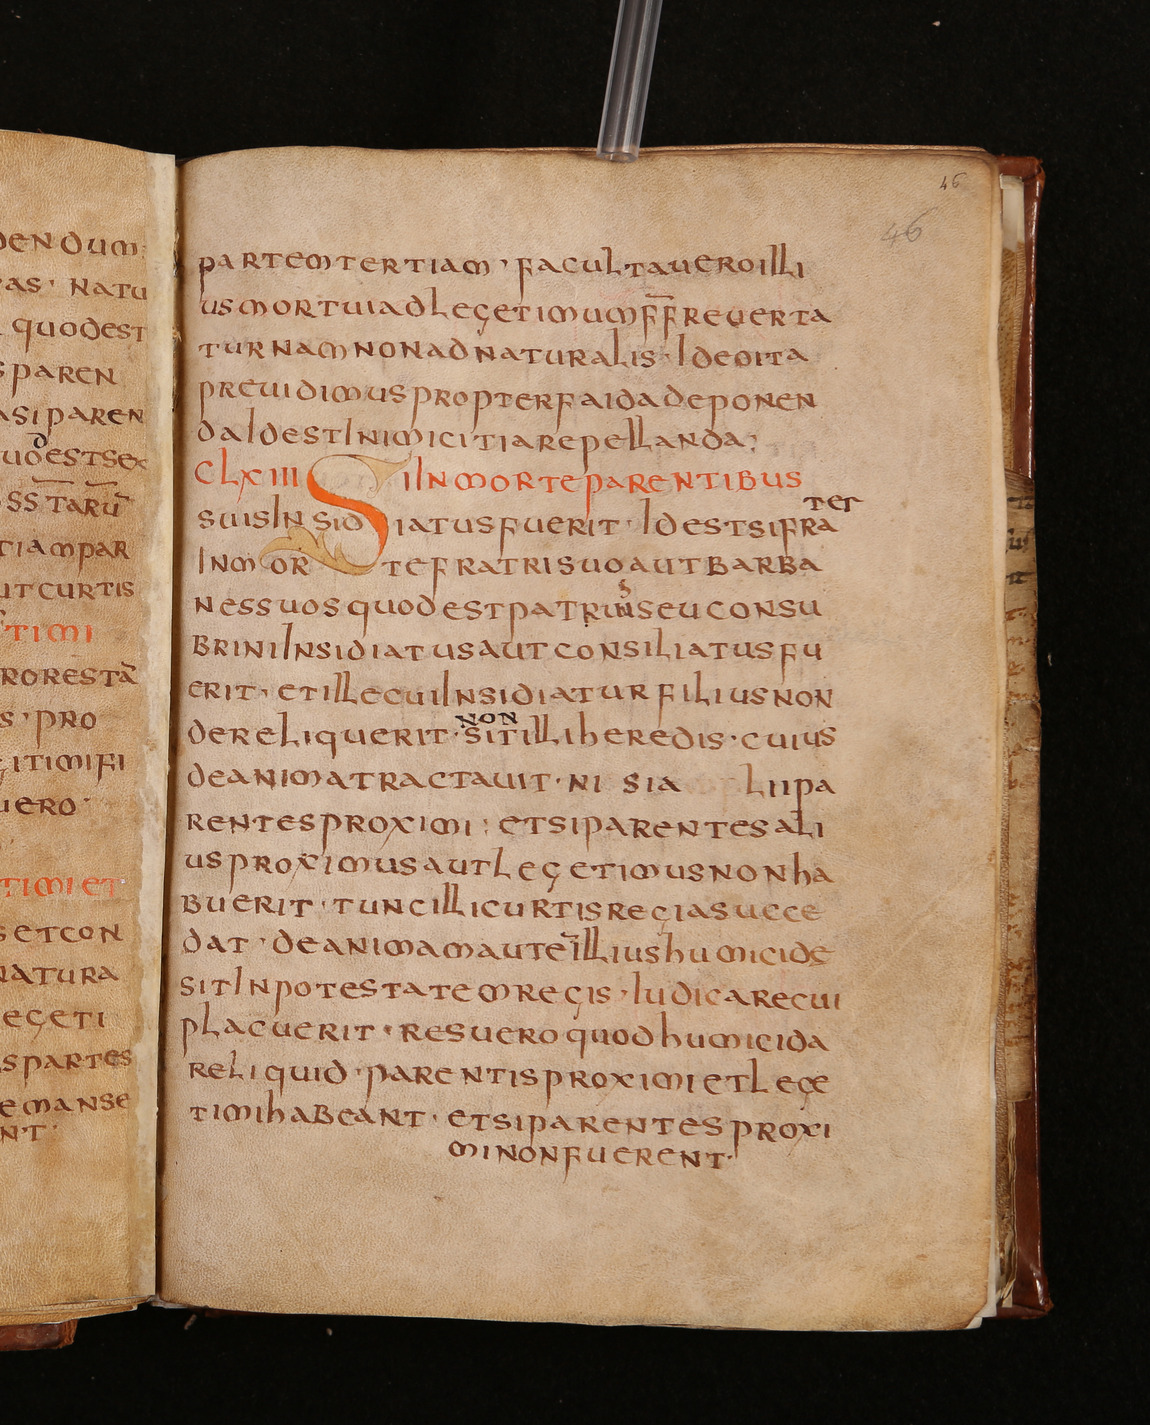 DENDUM
AS · NATU
QUODEST
SPAREN
ASIPAREN
UODESTSEX
SS TARU
TIAMPAR
UTCURTIS
TIMI
RORESTA
S · PRO
GITIMIFI
UERO ·
TIMIET
SETCON
NATURA
EGETI
SPARTES
EMANSE
NT ·
46
46
PARTEMTERTIAM · FACULTAUEROILLI
USMORTUIADLEGETIMUMF̅F̅REUERTA
TURNAMNONADNATURALIS · IDEOITA
PREUIDIMUSPROPTERFAIDADEPONEN
DAIDESTINIMICITIAREPELLANDA;
CLXIII SIINMORTEPARENTIBUS
SUISINSIDIATUSFUERIT · IDESTSIFRATER
INMORTEFRATRISUOAUTBARBA
NESSUOSQUODESTPATRUUSSEUCONSU
BRINIINSIDIATUSAUTCONSILIATUSFU
ERIT · ETILLECUIINSIDIATURFILIUSNON
DERELIQUERIT · NON SITILLIHEREDIS · CUIUS
DEANIMATRACTAUIT · NI SIA LIIPA
RENTESPROXIMI : ETSIPARENTESALI
USPROXIMUSAUTLEGETIMUSNONHA
BUERIT · TUNCILLICURTISREGIASUCCE
DAT · DEANIMAMAUTE̅ILLIUSHUMICIDE
SITINPOTESTATEMREGIS · IUDICARECUI
PLACUERIT · RESUEROQUODHUMICIDA
RELIQUID · PARENTISPROXIMIETLEGE
TIMIHABEANT · ETSIPARENTESPROXI
MINONFUERENT ·